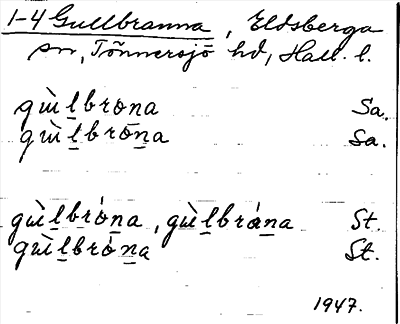 1-4 Gullbranna, Eldsberga
sn, Tönnersjö hd, Hall. l.
gùl̲brona Sa.
gùl̲brōn̲a Sa.
gùl̲brón̲a, gùl̲brán̲a St.
gùl̲brón̲a St.
1947.